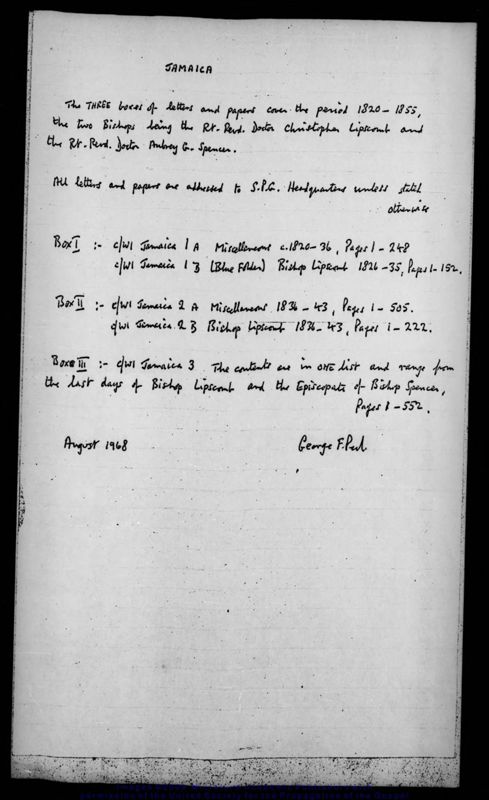 JAMAICA
The THREE boxes of letters and papers cover the period 1820 - 1855,
the two Bishops being the Rt. Revd. Doctor Christopher Lipscomb and
the Rt. Revd. Doctor Aubrey G. Spencer.
All letters and papers are addressed to S.P.G. Headquarters unless stated
otherwise
Box I :- C/WI Jamaica 1 A Miscellaneous c.1820-36, Pages 1 - 248
C/WI Jamaica 1 B (Blue Folder) Bishop Lipscomb 1826-35, Pages 1-152.
Box II :- C/WI Jamaica 2 A Miscellaneous 1836 - 43, Pages 1 - 505.
C/WI Jamaica 2 B Bishop Lipscomb 1836-43, Pages 1 - 222.
Box III :- C/WI Jamaica 3 The contents are in ONE list and range from
the last days of Bishop Lipscomb and the Episcopate of Bishop Spencer,
Pages 1 - 552.
August 1968 George F.
permission of the United Society for the Propagation of the Gospel